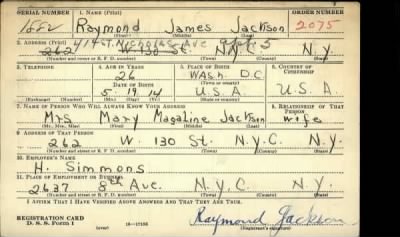 SERIAL NUMBER 1. NAME (Print) ORDER NUMBER
1882 Raymond James Jackson 2075
(First) (Middle) (Last)
2. ADDRESS (Print) 414 St. Nicholas Ave Apt 5
262 W 130 St. N.Y. N.Y.
(Number and street or R. F. D. number) (Town) (County) (State)
3. TELEPHONE 4. AGE IN YEARS 5. PLACE OF BIRTH 6. COUNTRY OF CITIZENSHIP
26 Wash. D.C.
5 19 14 U.S.A U.S.A.
(Mo.) (Day) (Yr.)
7. NAME OF PERSON WHO WILL ALWAYS KNOW YOUR ADDRESS 8. RELATIONSHIP OF THAT PERSON
Mrs Mary Magaline Jackson wife
(Mr., Mrs., Miss) (First) (Middle) (Last)
9. ADDRESS OF THAT PERSON
262 W. 130 St. N.Y.C. N.Y.
(Number and street or R. F. D. number) (Town) (County) (State)
10. EMPLOYER'S NAME
H. Simmons
11. PLACE OF EMPLOYMENT OR BUSINESS
2637 8th Ave. N.Y.C. N.Y.
(Number and street or R. F. D. number) (Town) (County) (State)
I AFFIRM THAT I HAVE VERIFIED ABOVE ANSWERS AND THAT THEY ARE TRUE.
REGISTRATION CARD
D. S. S. Form 1 (over) 16—17105 Raymond Jackson
(Registrant's signature)